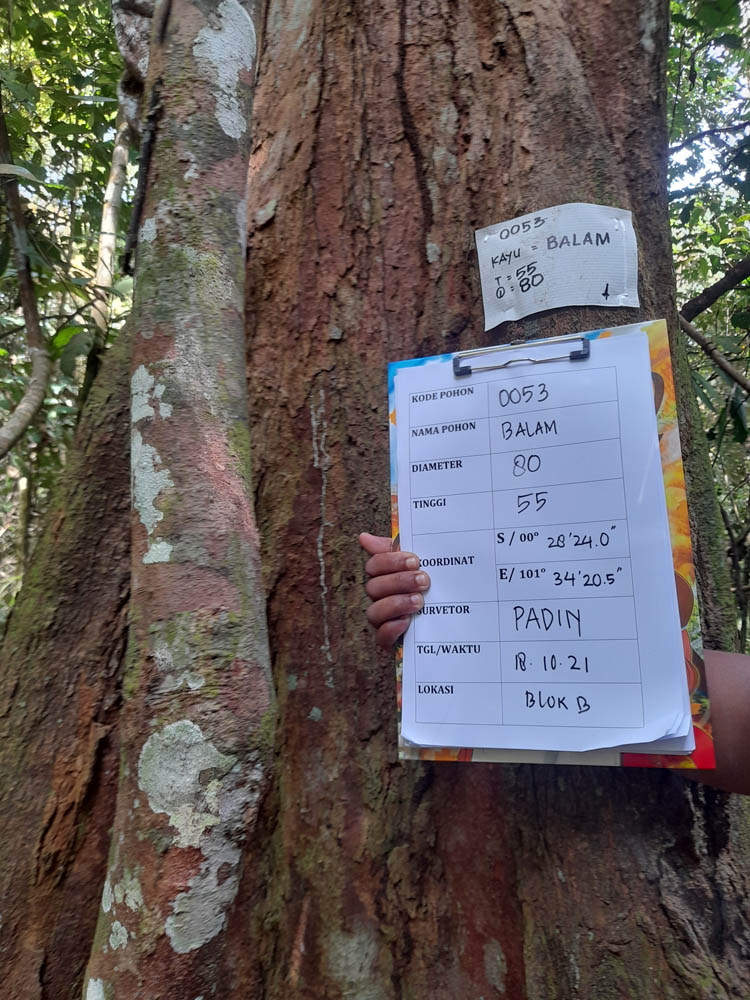 0053
KAYU = BALAM
T = 55
Ⓓ : 80
KODE POHON 0053
NAMA POHON BALAM
DIAMETER 80
TINGGI 55
KOORDINAT S / 00° 28'24.0"
E/ 101° 34'20.5"
SURVETOR PADIN
TGL/WAKTU 18.10.21
LOKASI BLOK B